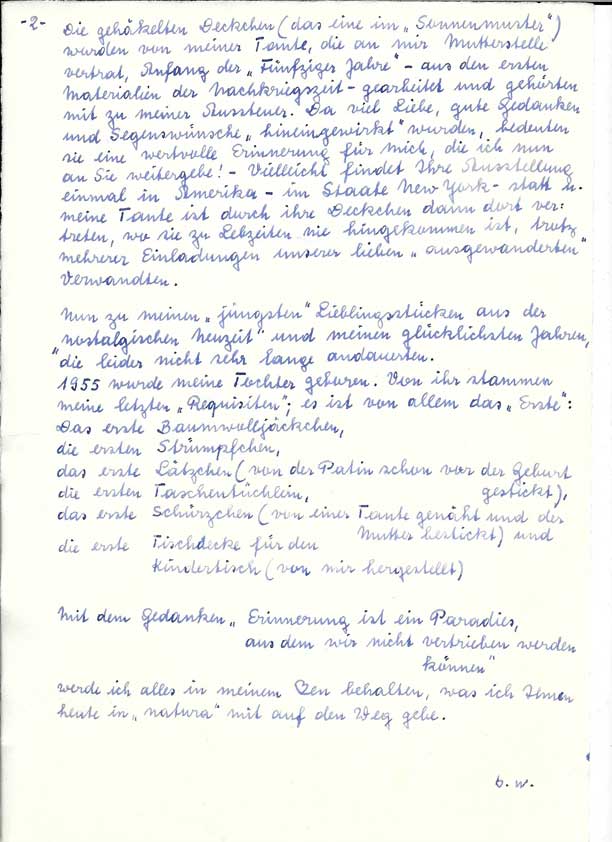 -2-
Die gehäkelten Deckchen (das eine im „Sonnenmuster")
wurden von meiner Tante, die an mir Mutterstelle
vertrat, Anfang der „Fünfziger Jahre" - aus den ersten
Materialien der Nachkriegszeit - gearbeitet und gehörten
mit zu meiner Aussteuer. Da viel Liebe, gute Gedanken
und Segenswünsche „hineingewirkt" wurden, bedeuten
sie eine wertvolle Erinnerung für mich, die ich nun
an Sie weitergebe! - Vielleicht findet Ihre Ausstellung
einmal in Amerika - im Staate New York - statt u.
meine Tante ist durch ihre Deckchen dann dort ver:
treten, wo sie zu Lebzeiten nie hingekommen ist, trotz
mehrerer Einladungen unserer lieben „ausgewanderten"
Verwandten.
Nun zu meinen „jüngsten" Lieblingsstücken aus der
„nostalgischen Neuzeit" und meinen glücklichsten Jahren,
die leider nicht sehr lange andauerten.
1955 wurde meine Tochter geboren. Von ihr stammen
meine letzten „Requisiten"; es ist von allem das „Erste":
Das erste Baumwolljäckchen,
die ersten Strümpfchen,
das erste Lätzchen (von der Patin schon vor der Geburt
gestickt),
die ersten Taschentüchlein,
das erste Schürzchen (von einer Tante genäht und der
Mutter bestickt) und
die erste Tischdecke für den
Kindertisch (von mir hergestellt)
Mit dem Gedanken „Erinnerung ist ein Paradies,
aus dem wir nicht vertrieben werden
können"
werde ich alles in meinem behalten, was ich Ihnen
heute in „natura" mit auf den Weg gebe.
b. w.